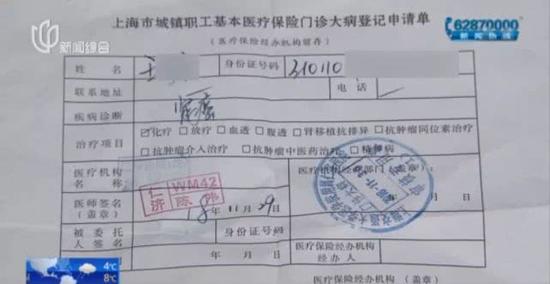 新闻综合
62870000
新闻热线
上海市城镇职工基本医疗保险门诊大病登记申请单
（医疗保险经办机构留存）
姓名 王 身份证号码 310110
联系地址 电话
疾病诊断 肾癌
治疗项目 ☑化疗 □放疗 □血透 □腹透 □肾移植抗排异 □抗肿瘤同位素治疗
□抗肿瘤介入治疗 □抗肿瘤中医药治疗 □精神病
医疗机构名称 医疗机构经办部门（盖章）：
仁济 WM42 陈
医师签名（盖章） 18年11月29日 年 月 日
被委托人签名 身份证号码
年 月 日 医疗保险经办机构经办人
医疗保险经办机构（盖章）
4℃
8℃